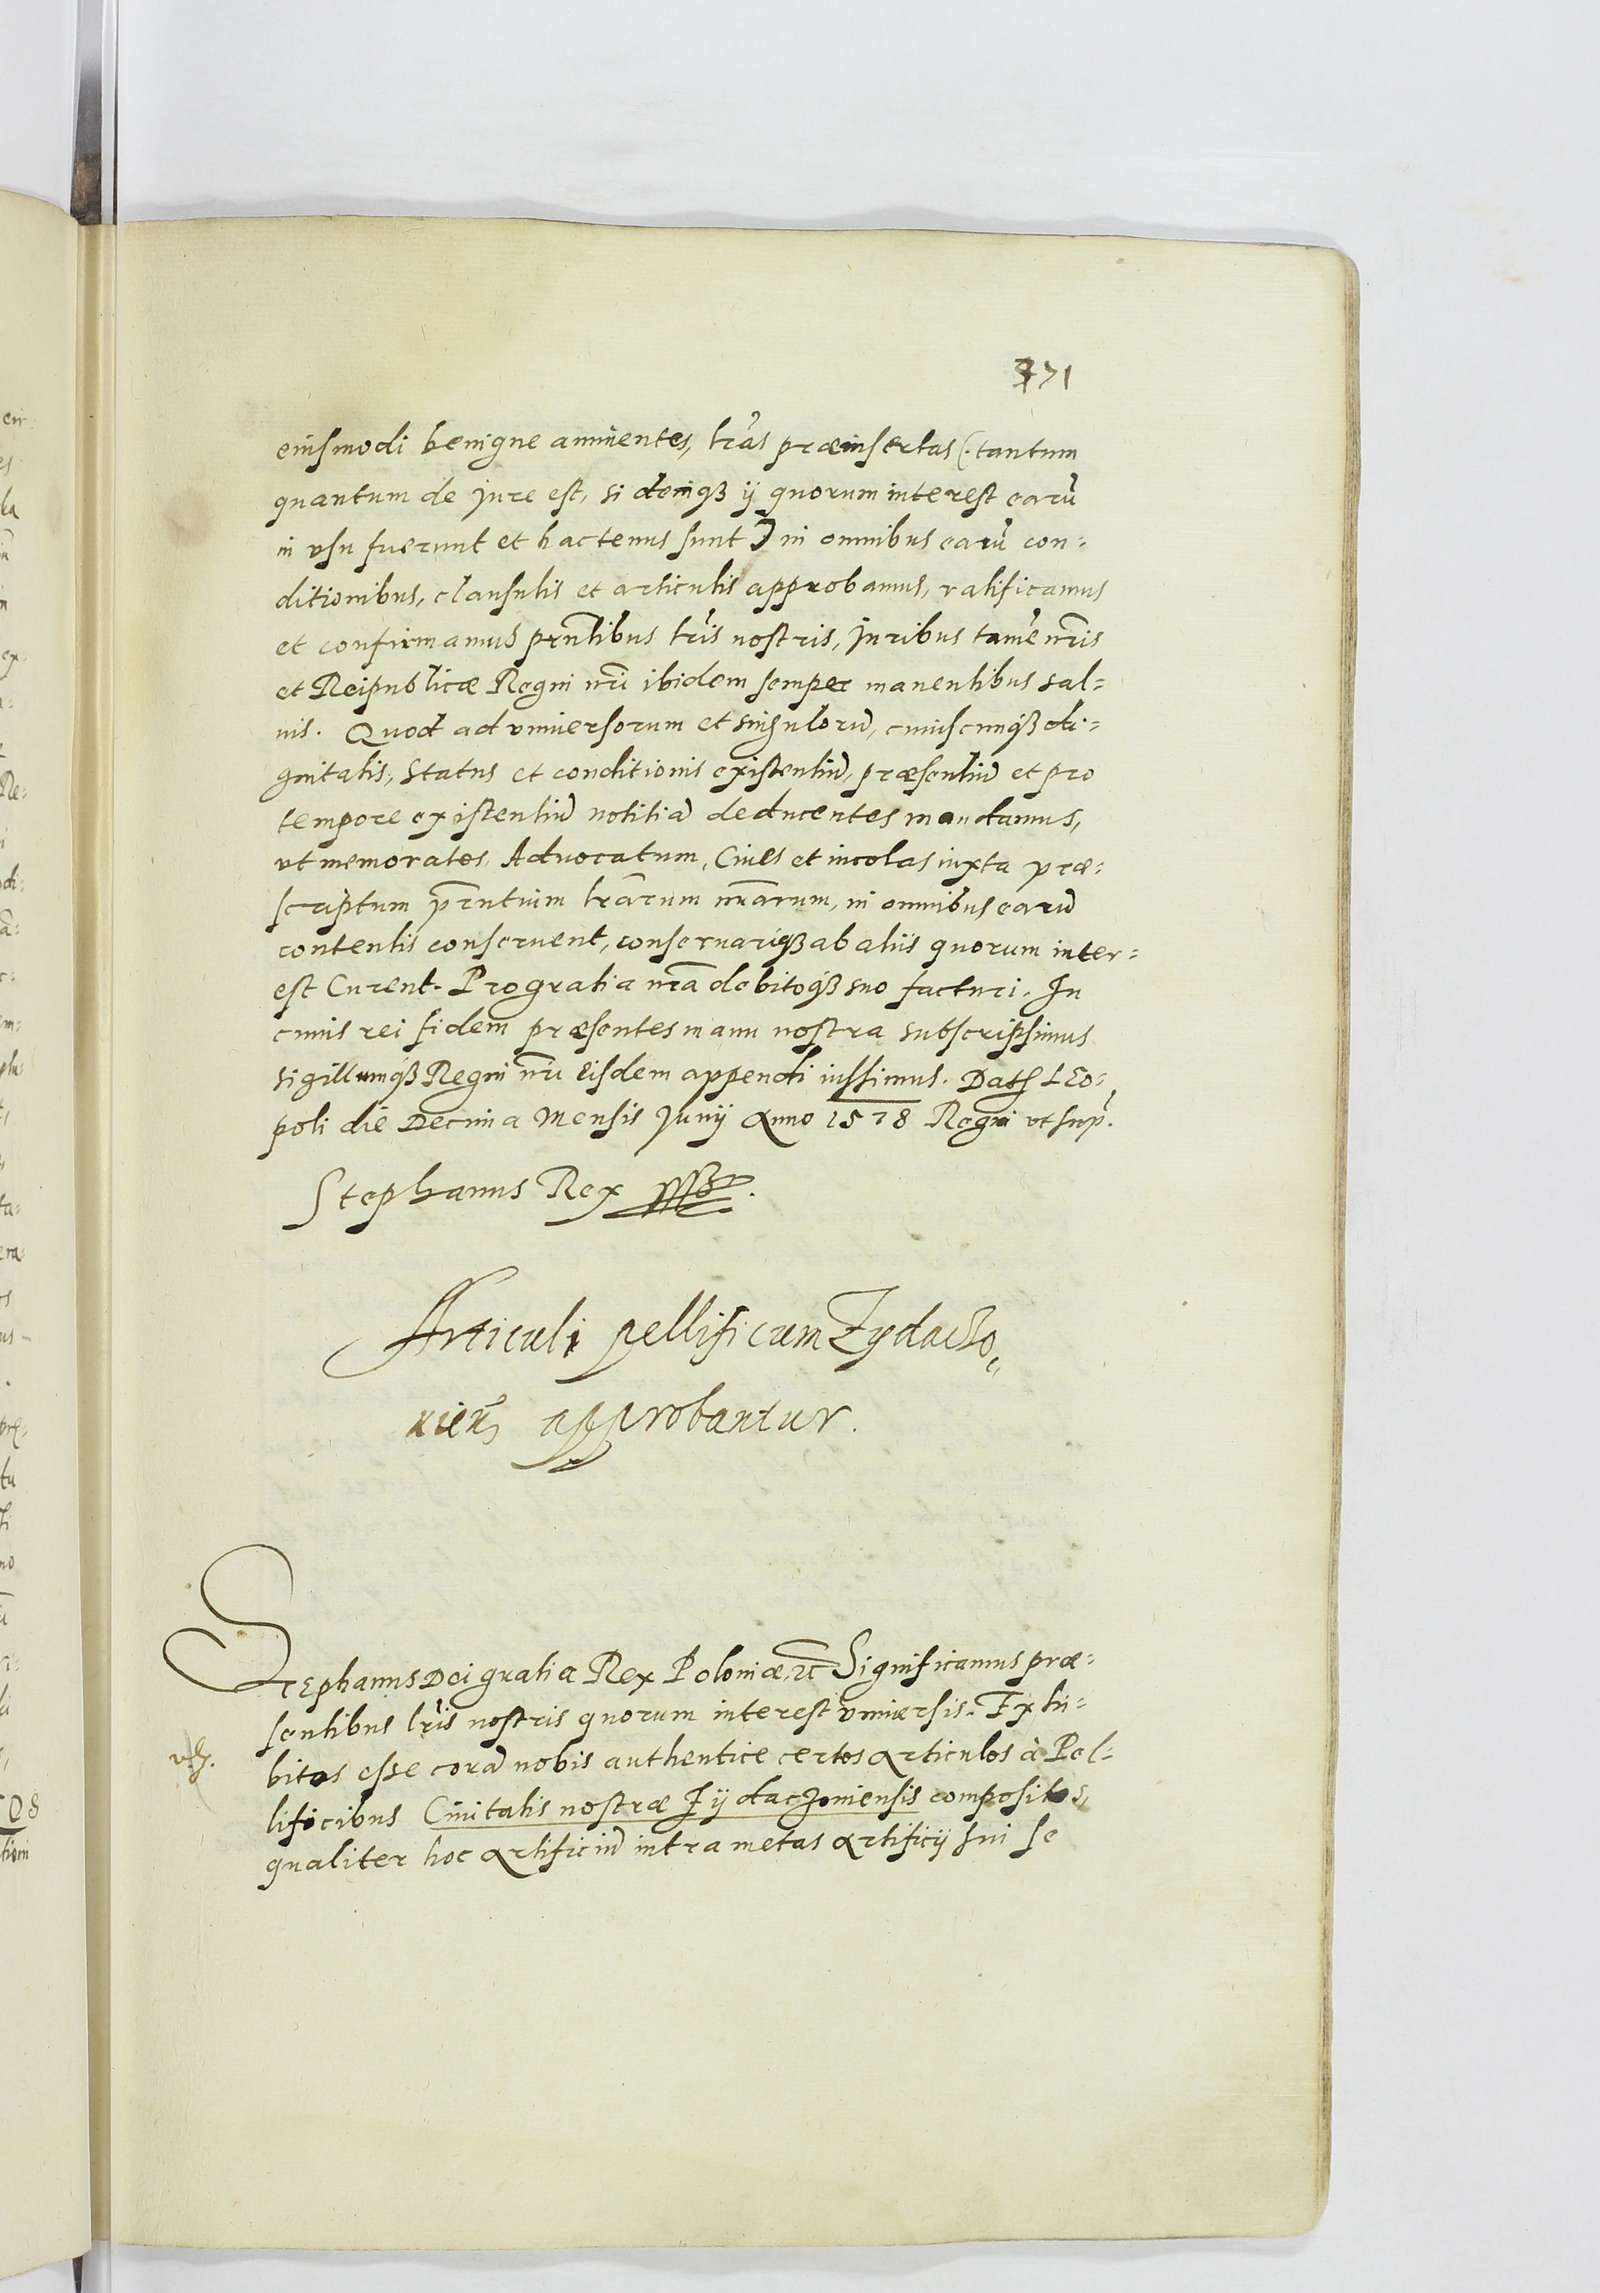 371
eiusmodi benigne annuentes, lr̃as præinsertas (. tantum
quantum de jure est, si deniq3 ij quorum interest earũ
in vsu fuerunt et hactenus sunt) in omnibus earũ con=
ditionibus, clausulis et articulis approbamus, ratificamus
et confirmamus prñtibus lr̃is nostris, juribus tamẽ nr̃is
et Reipublicæ Regni nr̃i ibidem semper manentibus sal=
uis. Quod ad vniuersorum et singulorũ, cuiuscunq3 di=
gnitatis, status et conditionis existentiũ, præsentiũ et pro
tempore existentiũ notitiã deducentes mandamus,
vt memoratos, Aduocatum, Ciues et incolas iuxta præ=
scriptum pr̃ntium lr̃arum nr̃arum, in omnibus earũ
contentis conseruent, conseruariq3 ab aliis quorum inter=
est Curent. Pro gratia nr̃a debitoq3 suo facturi. In
cuius rei fidem præsentes manu nostra subscripsimus
sigillumq3 Regni nr̃i eisdem appendi iussimus. Dat̃ LEo=
poli die Decima Mensis Junij Anno 1578 Regni vt sup̃.
Stephanus Rex
Articuli pellificum Zydaczo„
uieñ approbantur.
STEphanus Dei gratia Rex Poloniæ, ꝛc̃ Significamus præ=
sentibus lr̃is nostris quorum interest vniuersis. Exhi=
bitos esse corã nobis authentice certos articulos à Pel=
lificibus Ciuitatis nostræ Zydaczouiensis compositos,
qualiter hoc artificiũ intra metas artificij sui se